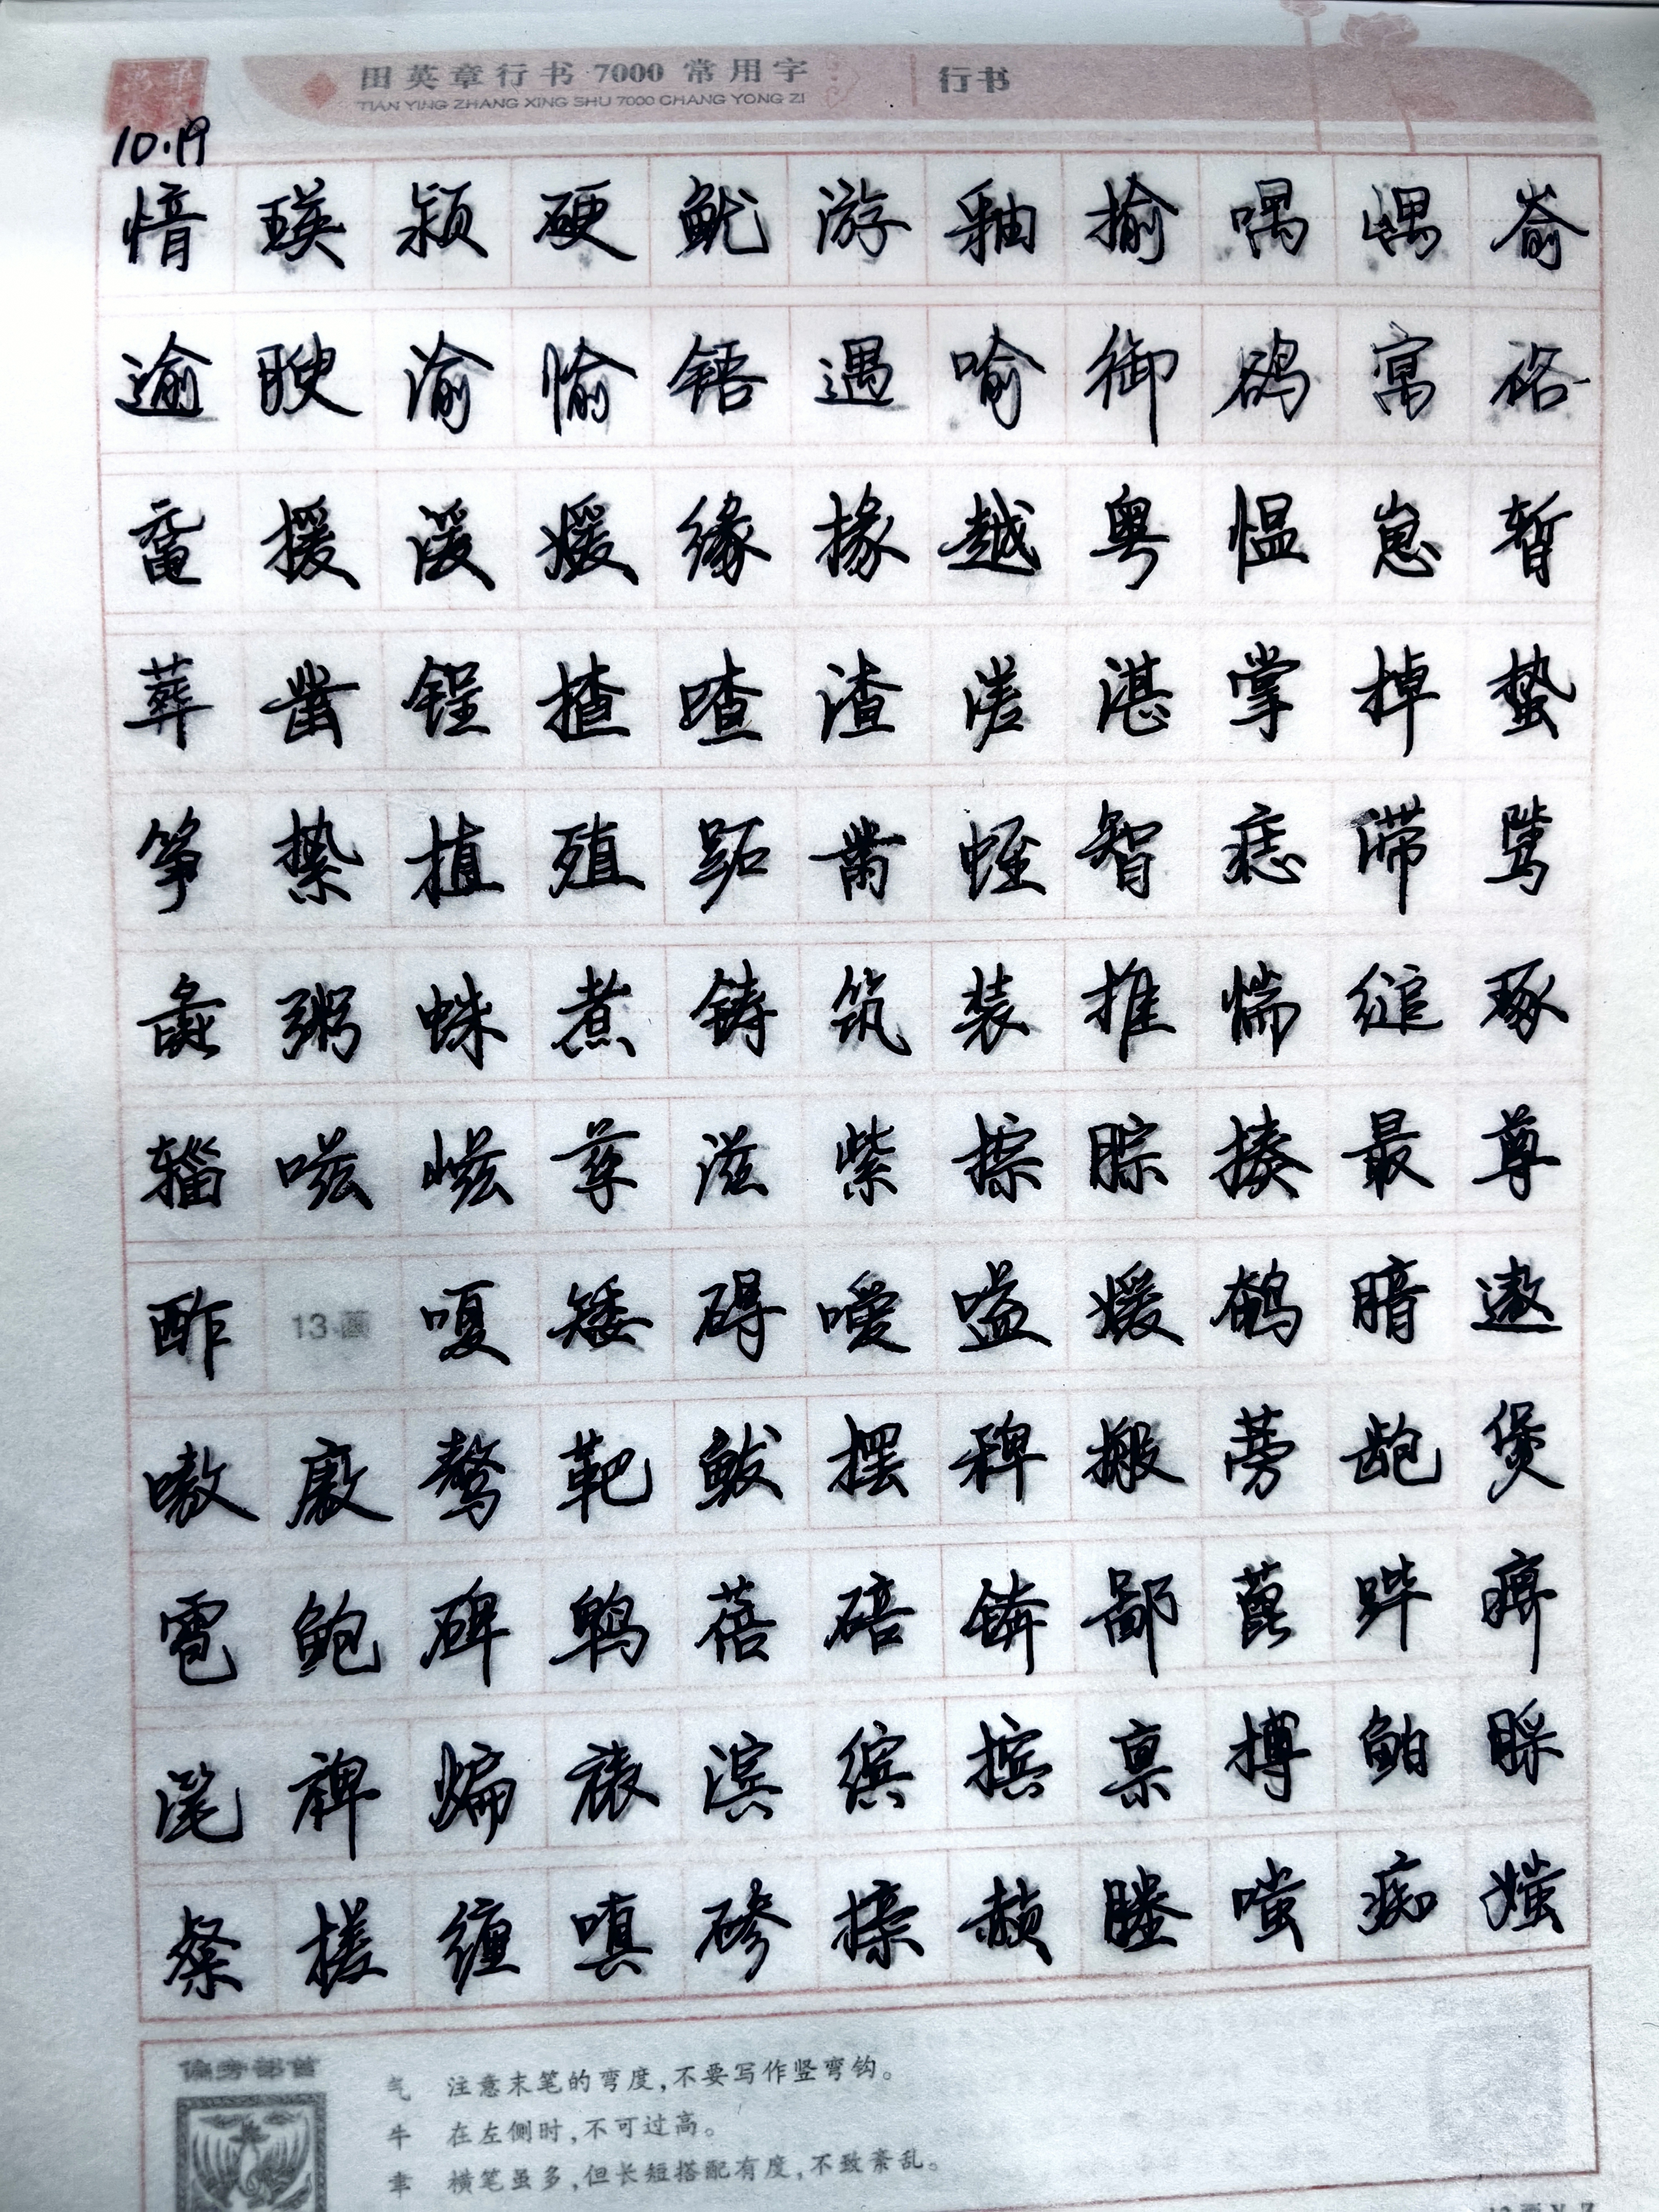 田英章行书 7000 常用字 行书
TIAN YING ZHANG XING SHU 7000 CHANG YONG ZI
10.19
愔瑛颍硬鱿游釉揄喁嵎嵛
逾腴渝愉铻遇喻御鹆寓硌
鼋援湲媛缘掾越粤愠崽暂
葬凿锃揸喳渣溠湛掌掉蛰
筝絷植殖跖黹蛭智痣滞骘
彘粥蛛煮铸筑装推惴缒琢
辎嗞嵫孳滋紫综腙揍最尊
酢 13画 嗄矮碍嗳嗌媛鹌暗遨
嗷廒骜靶鲅摆稗搬蒡龅煲
雹鲍碑鹎蓓碚锛鄙蓖跸痹
滗裨煸裱滨缤摈禀搏鲌睬
粲搓缠嗔碜搽赪塍嗤痴媸
偏旁部首
气 注意末笔的弯度,不要写作竖弯钩。
牛 在左侧时,不可过高。
聿 横笔虽多,但长短搭配有度,不致紊乱。